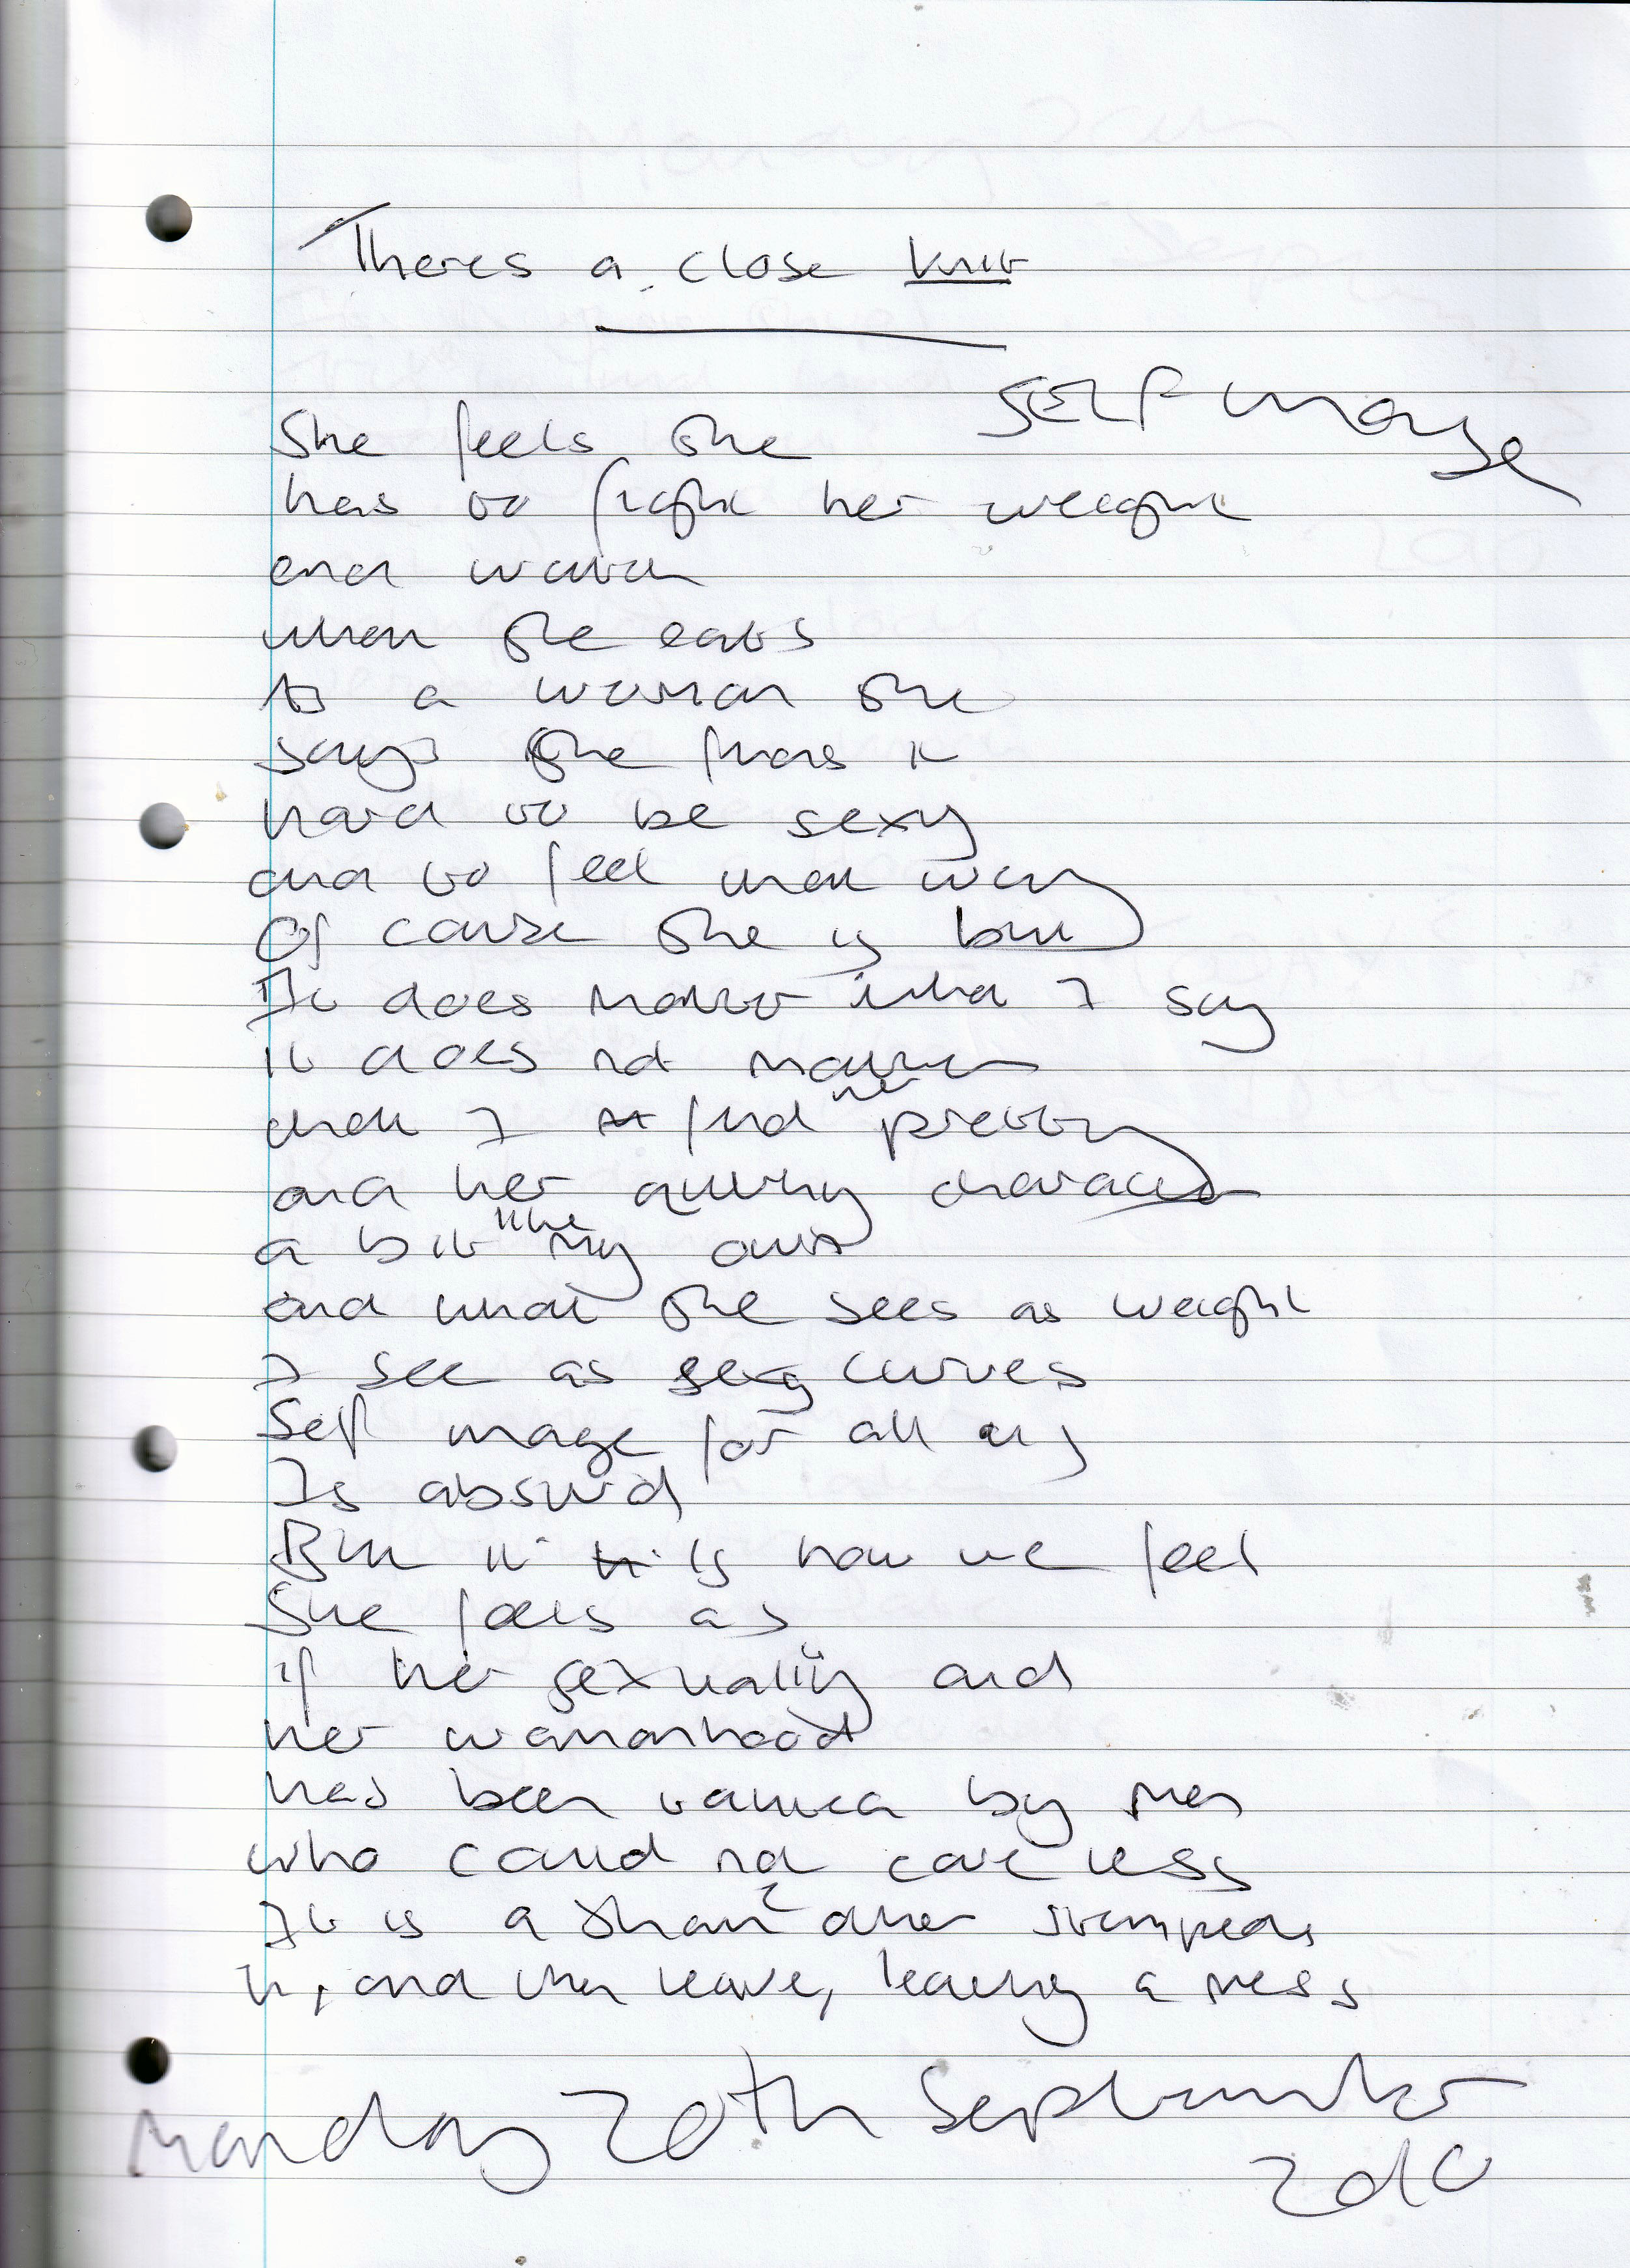 Theres a close knit
SELF Image
She feels she
has to fight her weight
and watch
when she eats
As a woman she
says she finds it
hard to be sexy
and to feel that way
Of cause she is but
It does matter what I say
it does not matter
that I find her pretty
and her quirky character
a bit like my own
and what she sees as weight
I see as sexy curves
Self image for all
Is absurd
But it is how we feel
She feels as
if her sexuality and
her womanhood
has been by men
who could not care less
It is a other
it, and then leave, leaving a mess
Monday 20th September
2010